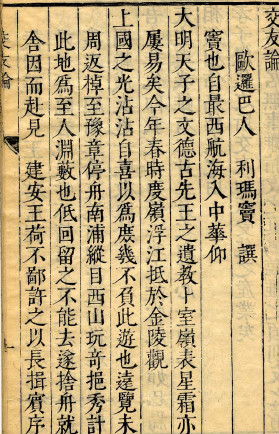 交友論
歐邏巴人 利瑪竇 譔
竇也自最西航海入中華仰
大明天子之文德古先王之遺教卜室嶺表星霜亦
屢易矣今年春時度嶺浮江抵於金陵觀
上國之光沾沾自喜以爲庶幾不負此遊也遠覽未
周返棹至豫章停舟南浦縱目西山玩奇挹秀計
此地爲至人淵藪也低回留之不能去遂捨舟就
舍因而赴見 建安王荷不鄙許之以長揖賓序
交友論